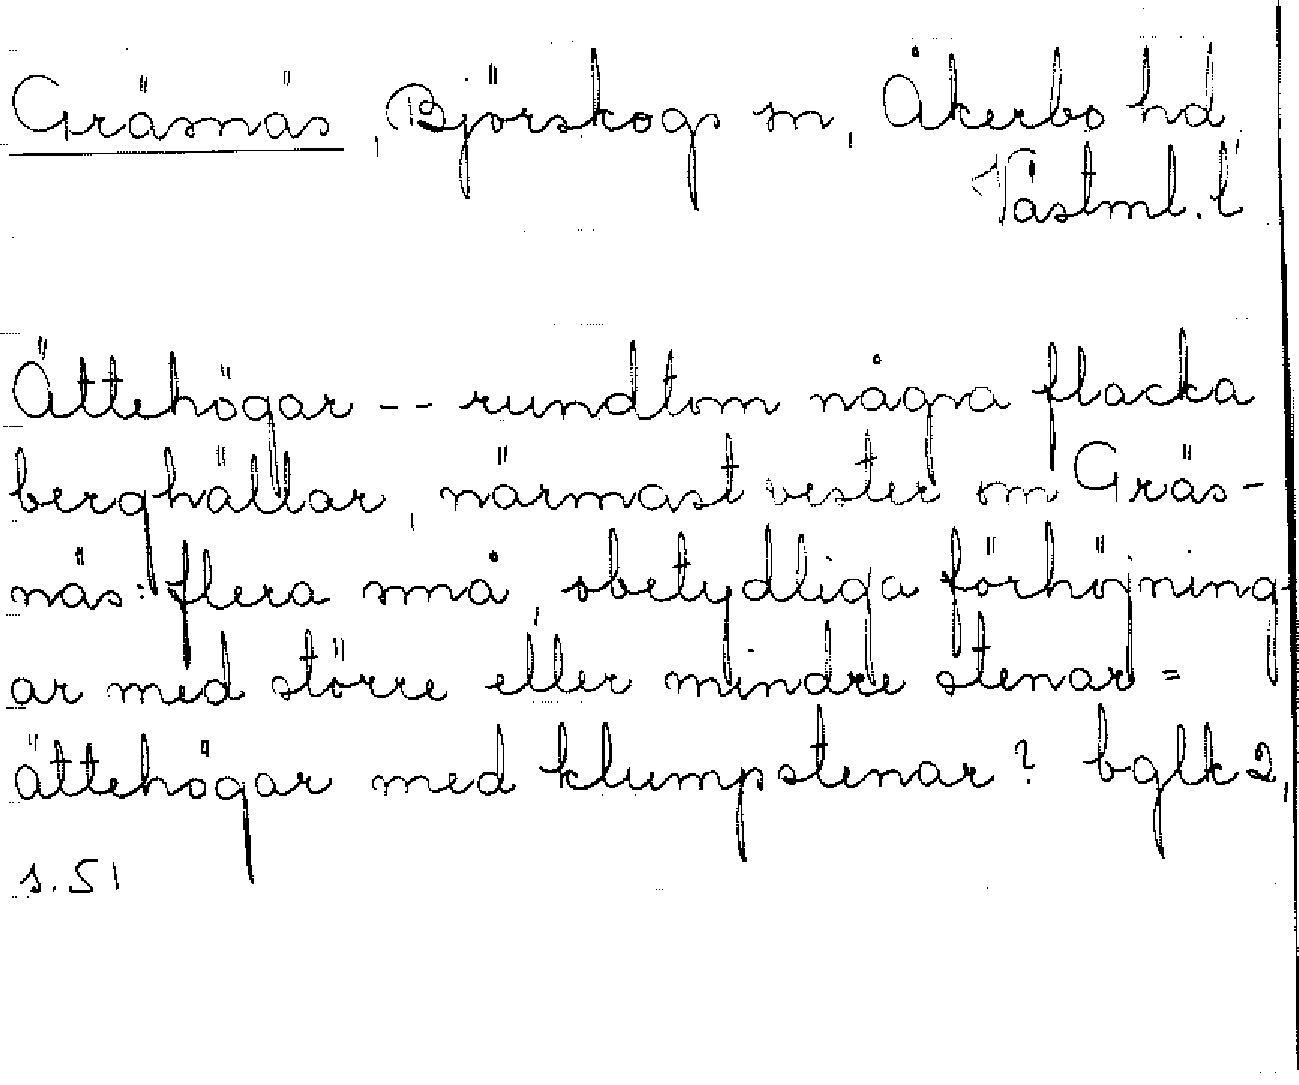 Gräsnäs, Björskogs sn, Åkerbo hd
Västml. l
Ättehögar -- rundtom några flacka
berghällar, närmast vester om Gräs-
näs: flera små, obetydliga förhöjning-
ar med större eller mindre stenar =
ättehögar med klumpstenar? bglk 2,
s. 51